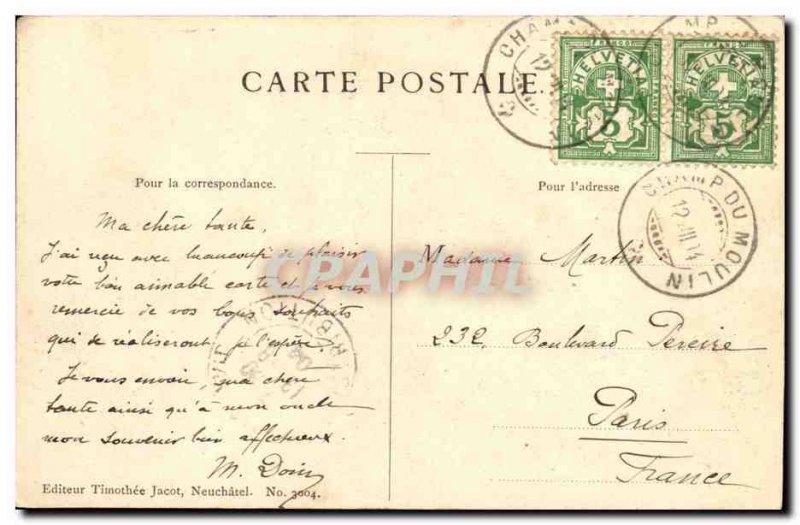 CARTE POSTALE.
FRANCO
HELVETIA
5
FRANCO
HELVETIA
5
CHAMP DU MOULIN
Pour la correspondance.
Pour l'adresse
Ma chère tante,
J'ai reçu avec beaucoup de plaisir
votre bon aimable carte et vous
remercie de vos bons souhaits
qui se réaliseront, je l'espère.
Je vous envoie, ma chère
tante ainsi qu'à mon oncle
mon souvenir bien affectueux.
M.
Madame Martin
232, Boulevard Pereire
Paris
France
CPAPHIL.COM
DISTRIBUTION
Editeur Timothée Jacot, Neuchâtel. No. 3004.